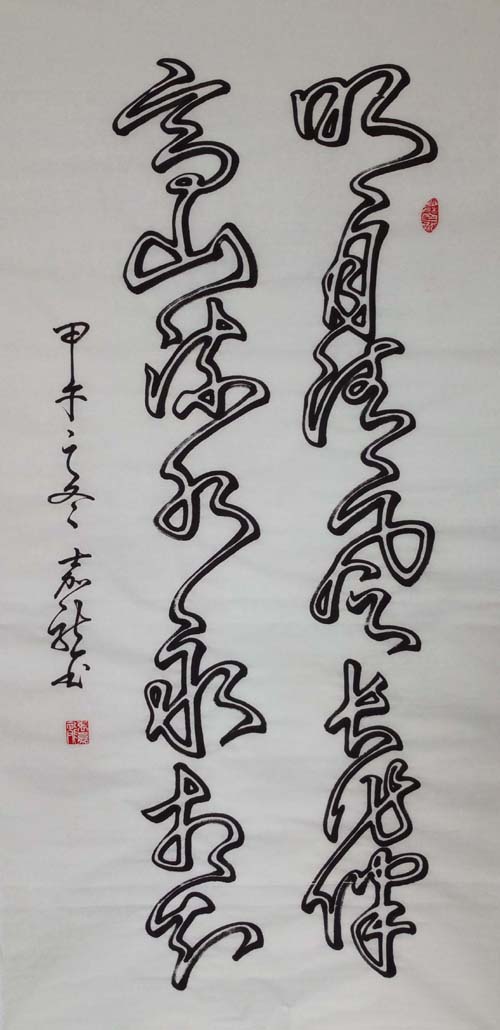 明月清风长作伴
高山流水永相知
甲午之冬 嘉龍书